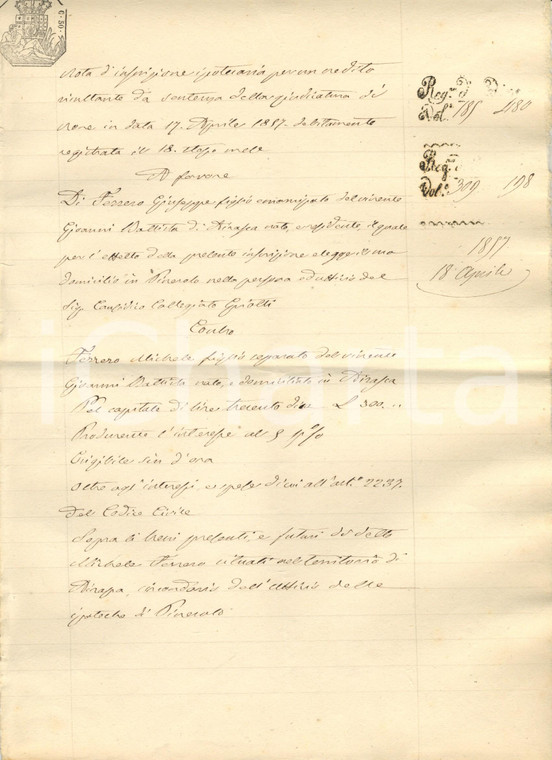 C. 50
Nota d'inscrizione ipotecaria per un credito
risultante da sentenza della giudicatura di
in data 17. Aprile 1857. debitamente
registrata il 18. stesso mese
A favore
Di Ferrero Giuseppe figlio emancipato del vivente
Giovanni Battista di Airasca nato, e residente, il quale
per l'effetto della presente inscrizione elegge il suo
domicilio in Pinerolo nella persona ed ufficio del
Sig. Causidico Collegiato Griotti
Contro
Ferrero Michele figlio separato dal vivente
Giovanni Battista nato, e domiciliato in Airasca
Pel capitale di lire trecento dico L. 300...
Producente l'interesse al 5 p%
Esigibile sin d'ora
Oltre agl'interessi, e spese di cui all'art.° 2237.
del Codice Civile
Sopra li beni presenti e futuri di detto
Michele Ferrero situati nel territorio di
Airasca, circondario dell'Ufficio delle
ipoteche di Pinerolo
Reg.
Vol. 185 480
Reg.
Vol. 309 198
1857
18 Aprile
iCharta